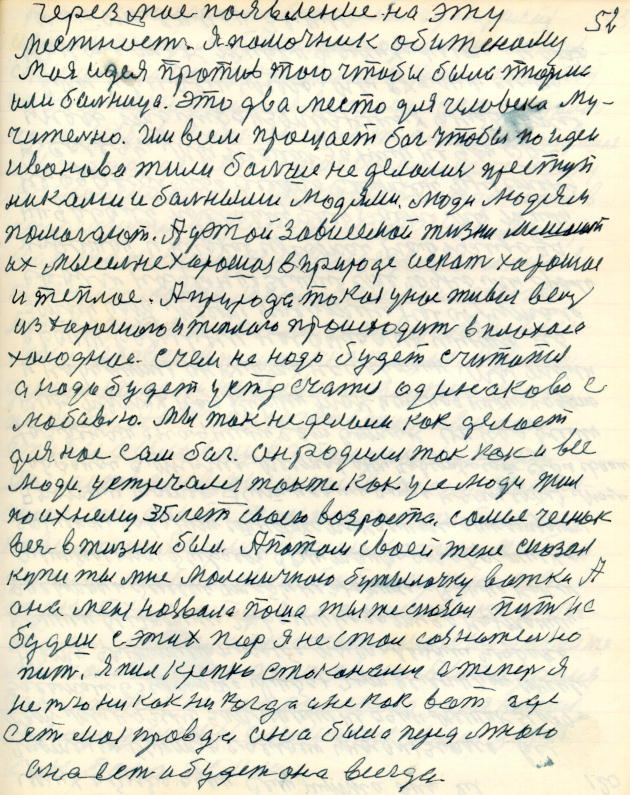 52
через мое появление на эту
местность. Я помочник обиженому
моя идея против того чтобы была тюрма
или балница. Это два место для человека му-
чително. Им всем прощает бог чтобы по идеи
иванова жили болше не делалис преступ
никами и балными людями. люди людям
помагают. А у этой зависемой жизни
их мысел не хорошая в природе искат хорошае
и теплое. А природа такая у нас живая везу
из харошого и теплаго происходит в плохоеа
холодное. с чем не надо будет считатся
а надо будет устречатся одинаково с
любовю. Мы так не делаем как делает
для нас сам бог. он родился так как и все
люди. устречался также как усе люди жил
по ихнему 35 лет своего возроста. самые
вся в жизни был. А потом своей жене сказал
купи ты мне малинкюю бутылочку ватки А
она мене назвала паша ты же сказал пит не
будеш с этих пор я не стал сознателно
пит. Я пил крепко стаканами а тепер я
не пю никак никогда
ест моя правда она была перед много
она ест и будет она всегда.